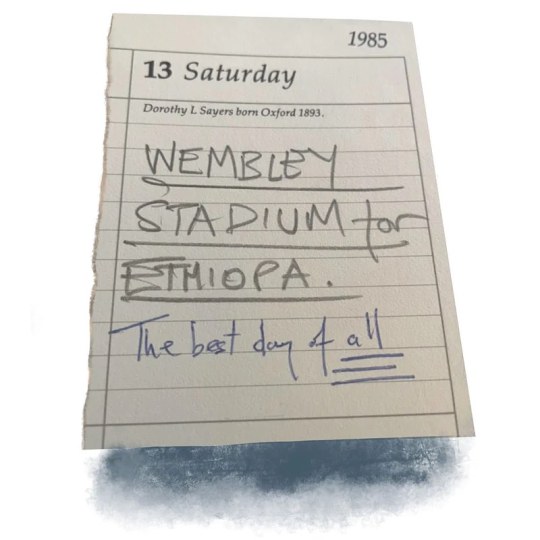 1985
13 Saturday
Dorothy L Sayers born Oxford 1893.
WEMBLEY
STADIUM for
ETHIOPA.
The best day of all